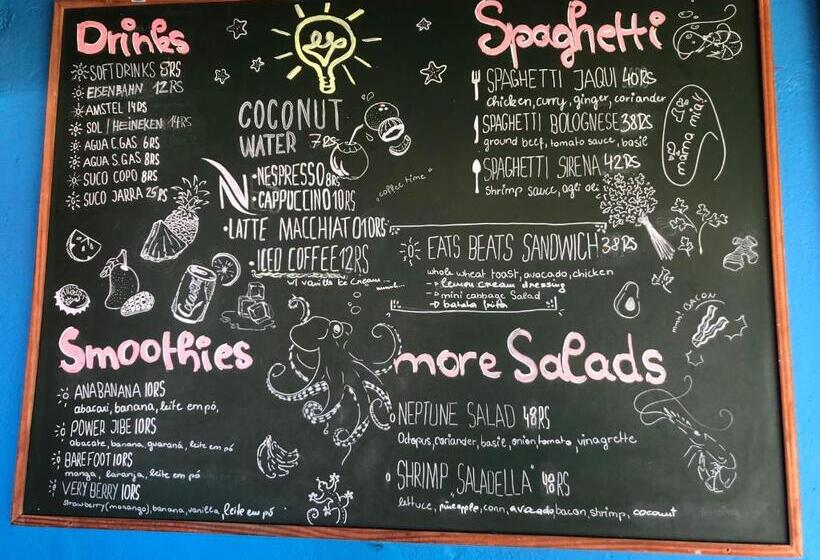 Drinks
SOFT DRINKS 8RS
EISENBAHN 12RS
AMSTEL 14RS
SOL / HEINEKEN 14RS
AGUA C.GAS 6RS
AGUA S.GAS 8RS
SUCO COPO 8RS
SUCO JARRA 25RS
COCONUT
WATER 7RS
N
•NESPRESSO 8RS
•CAPPUCCINO 10RS
•LATTE MACCHIATO 10RS
•ICED COFFEE 12RS
w/ vanilla ice cream...
"coffee time"
Spaghetti
SPAGHETTI JAQUI 40RS
chicken, curry, ginger, coriander
SPAGHETTI BOLOGNESE 38RS
ground beef, tomato sauce, basil
SPAGHETTI SIRENA 42RS
shrimp sauce, agli oli
mama mia!
EATS BEATS SANDWICH 38RS
whole wheat toast, avocado, chicken
→ lemon cream dressing
→ mini cabbage salad
→ batata frita
Smoothies
ANABANANA 10RS
abacaxi, banana, leite em pó,
POWER JIBE 10RS
abacate, banana, guaraná, leite em pó
BAREFOOT 10RS
manga, laranja, leite em pó
VERY BERRY 10RS
strawberry (morango), banana, vanilla, leite em pó
more Salads
BACON
NEPTUNE SALAD 48RS
Octopus, coriander, basil, onion, tomato, vinagrette
SHRIMP „SALADELLA" 48RS
lettuce, pineapple, corn, avocado, bacon, shrimp, coconut